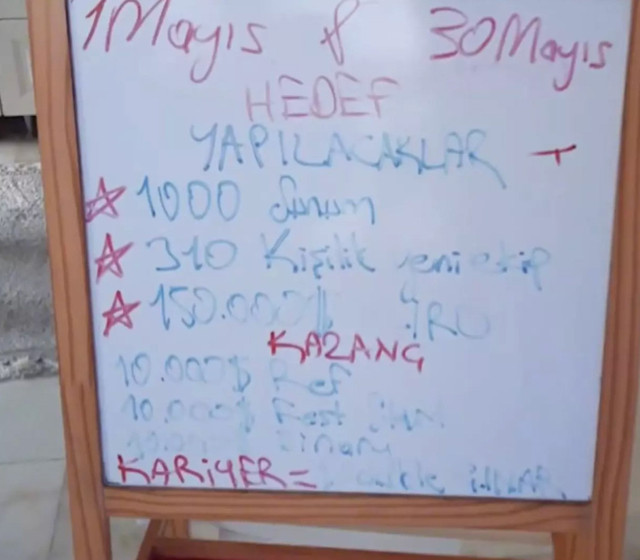 1 Mayıs & 30 Mayıs
HEDEF
YAPILACAKLAR
1000 Sunum
310 Kişilik yeni ekip
150.000$
KAZANÇ
10.000$ Ref
10.000$ Fast
Binary
KARİYER =